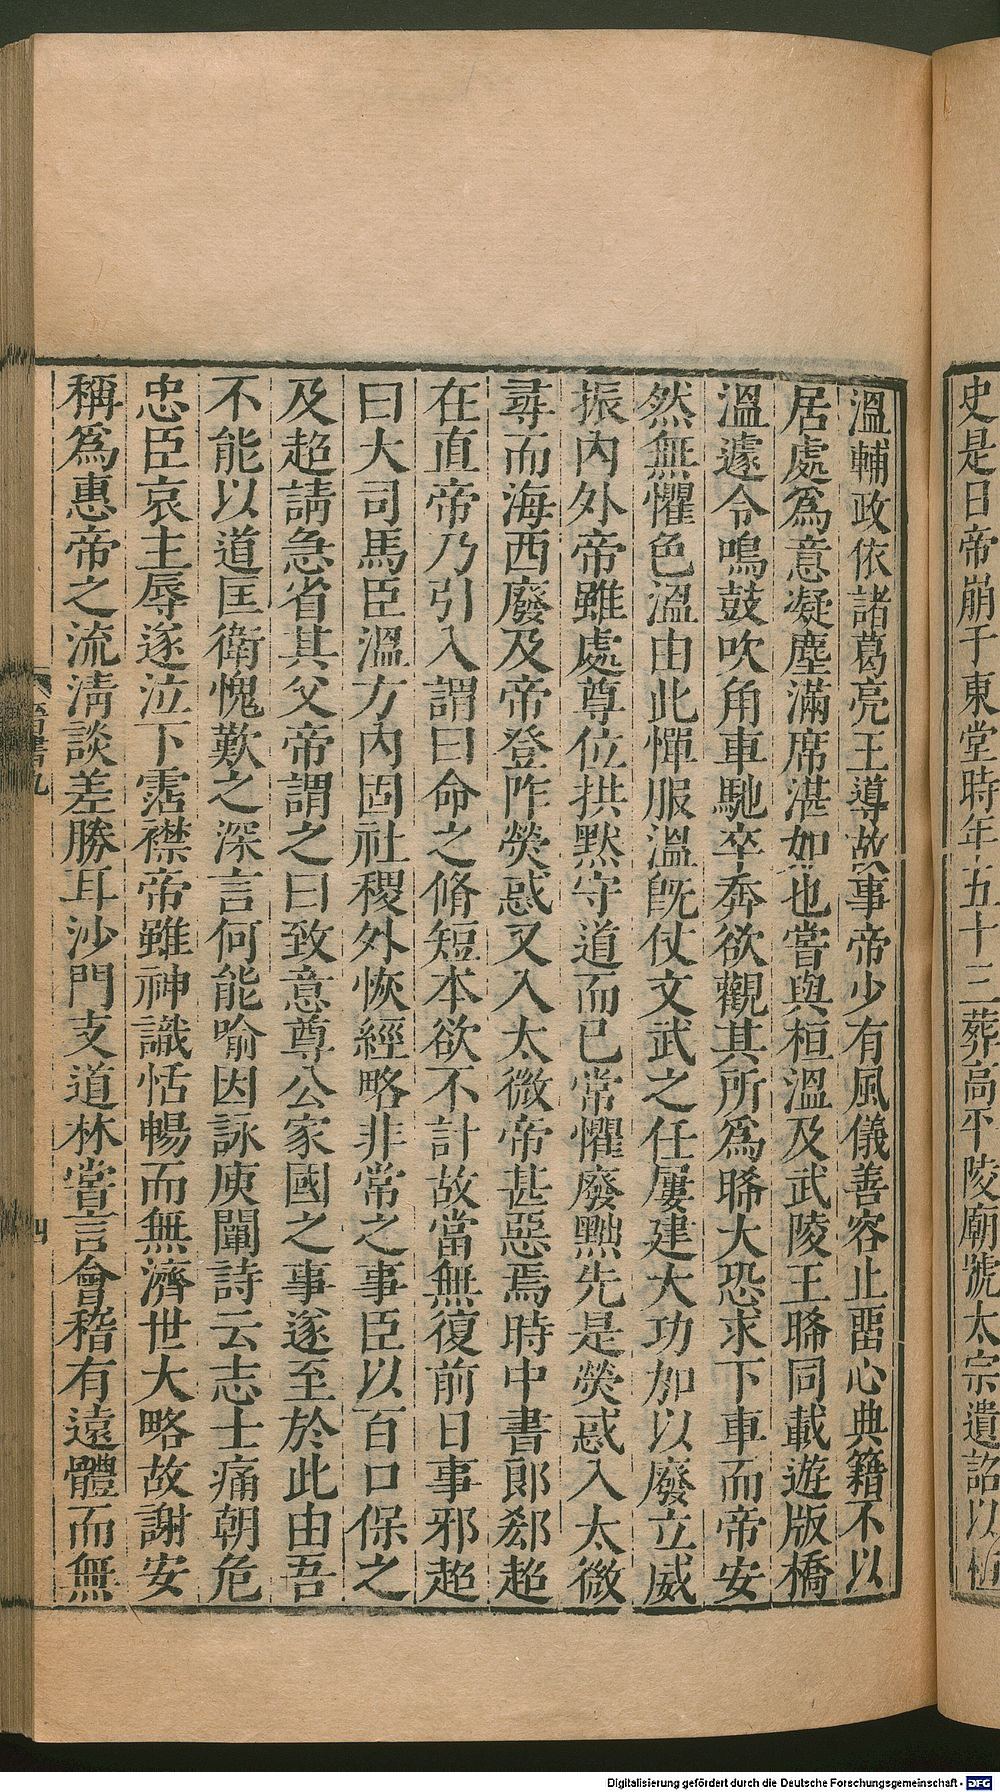 史是日帝崩于東堂時年五十三葬高平陵廟號太宗遺詔以桓
溫輔政依諸葛亮王導故事帝少有風儀善容止畱心典籍不以
居處爲意凝塵滿席湛如也嘗與桓溫及武陵王晞同載遊版橋
溫遽令鳴鼓吹角車馳卒奔欲觀其所爲晞大恐求下車而帝安
然無懼色溫由此憚服溫旣仗文武之任屢建大功加以廢立威
振內外帝雖處尊位拱默守道而已常懼廢黜先是熒惑入太微
尋而海西廢及帝登阼熒惑又入太微帝甚惡焉時中書郞郄超
在直帝乃引入謂曰命之脩短本欲不計故當無復前日事邪超
曰大司馬臣溫方內固社稷外恢經略非常之事臣以百口保之
及超請急省其父帝謂之曰致意尊公家國之事遂至於此由吾
不能以道匡衛愧歎之深言何能喻因詠庾闡詩云志士痛朝危
忠臣哀主辱遂泣下霑襟帝雖神識恬暢而無濟世大略故謝安
稱爲惠帝之流淸談差勝耳沙門支道林嘗言會稽有遠體而無
晉書九
四
Digitalisierung gefördert durch die Deutsche Forschungsgemeinschaft - DFG